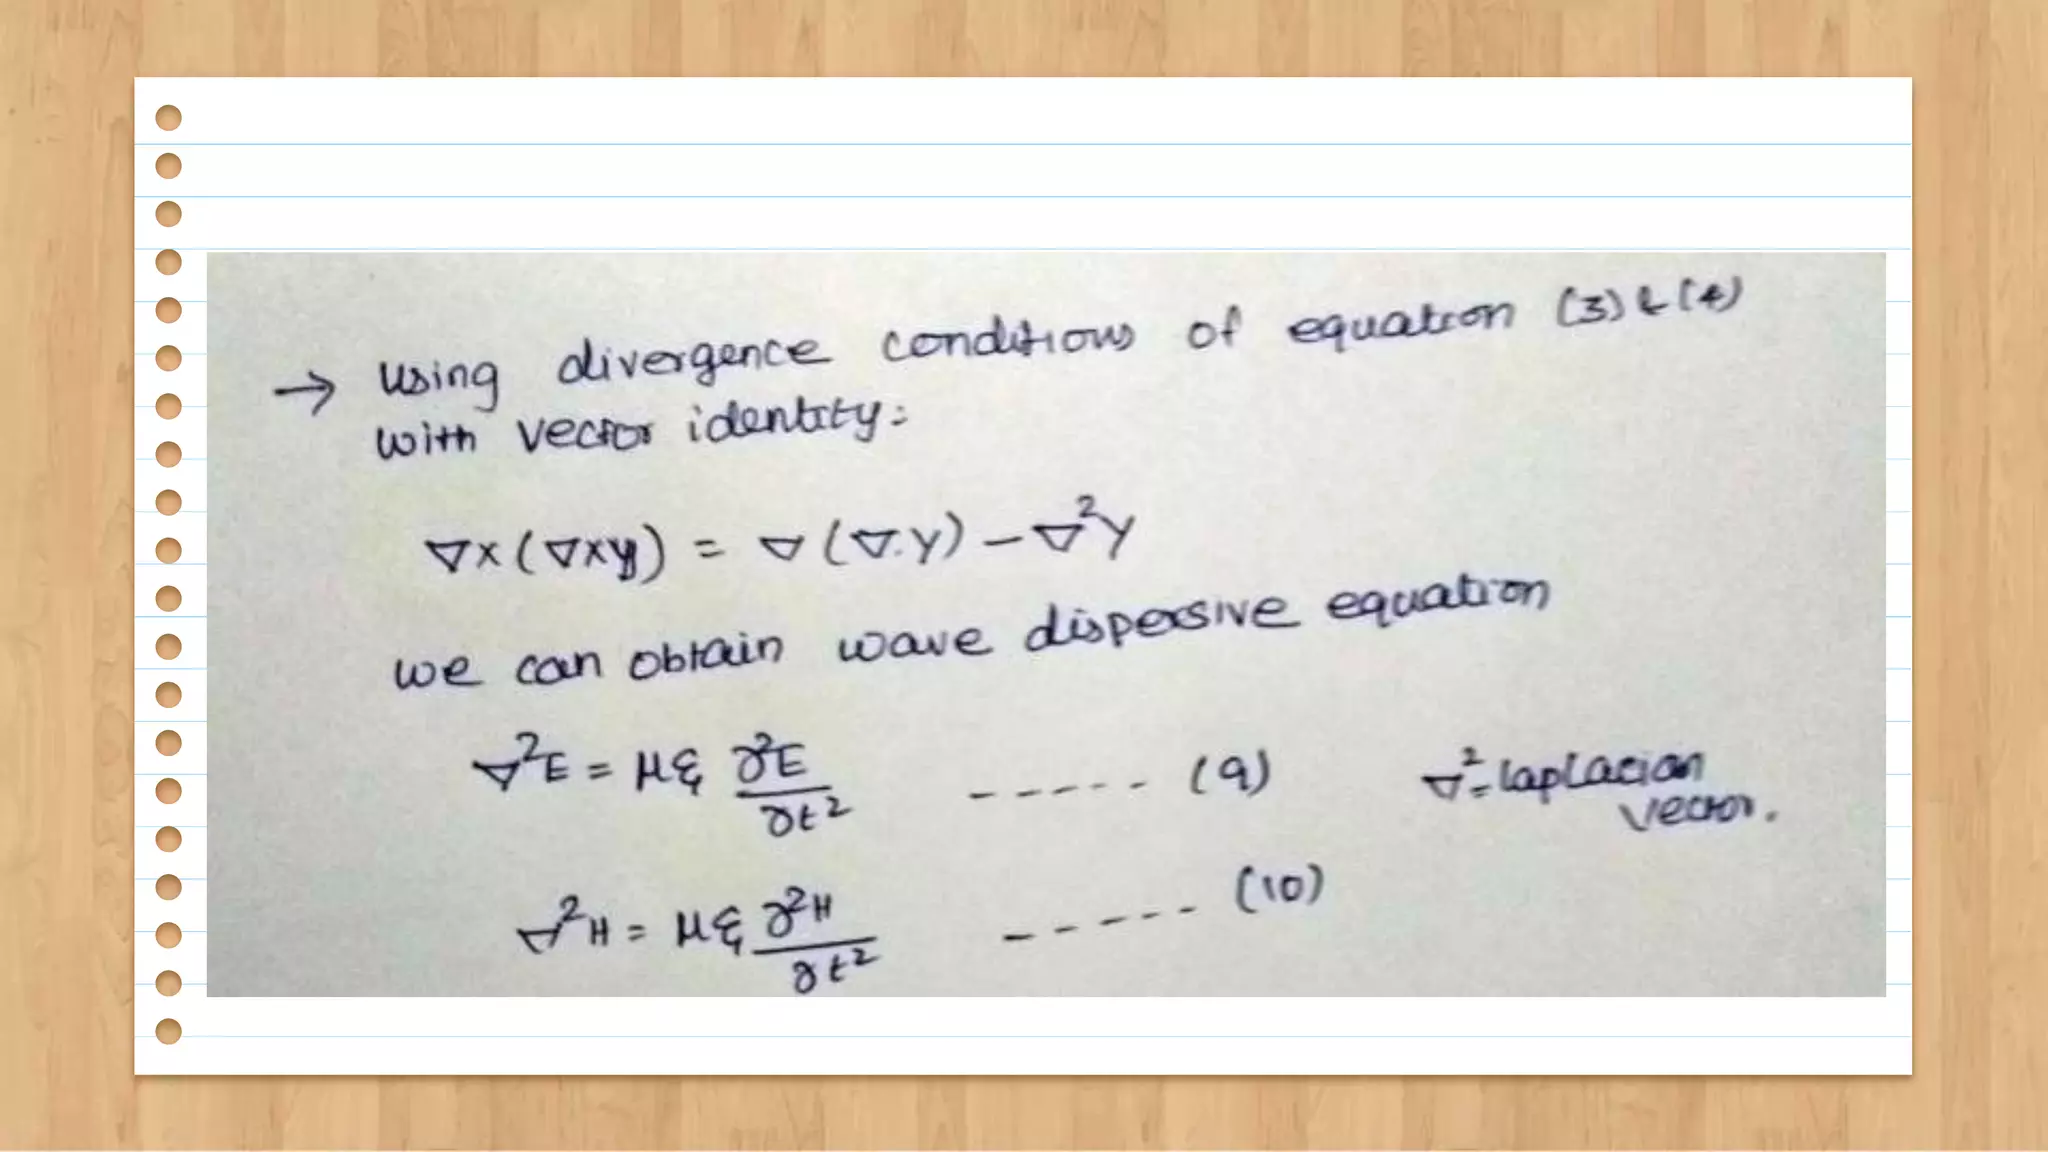 → using divergence conditions of equation (3) & (4)
with vector identity:
∇×(∇×y) = ∇(∇.Y) – ∇²Y
we can obtain wave dispersive equation
∇²E = με ∂²E/∂t² ----- (9) ∇² = laplacian
vector.
∇²H = με ∂²H/∂t² ----- (10)